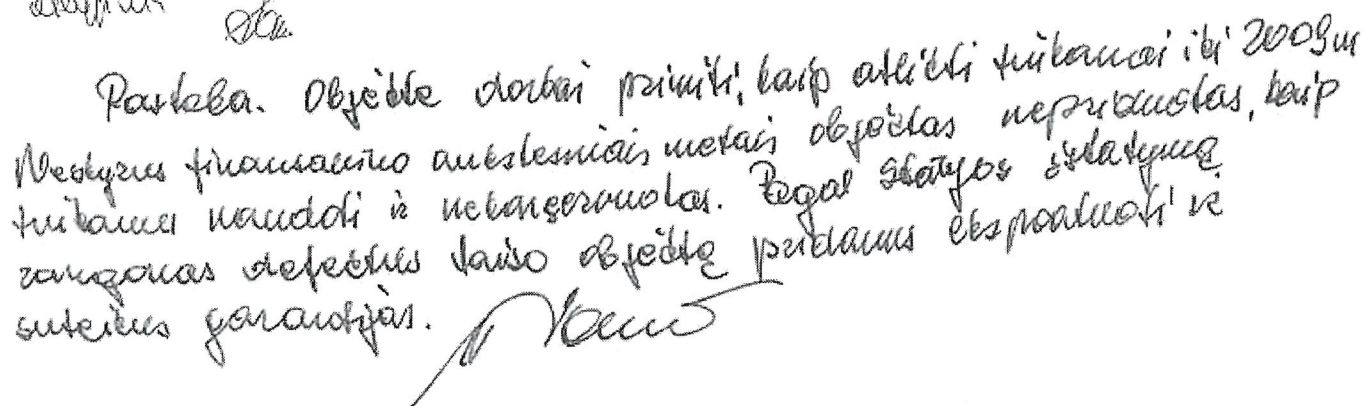 Pastaba. Objekte darbai priimti, kaip atlikti tinkamai iki 2009 m
Neskyrus finansavimo ankstesniais metais objektas nepriduotas, kaip
tinkamas naudoti ir nekonservuotas. Pagal Statybos įstatymą
rangovas defektus taiso objektą pridavus eksploatuoti ir
suteikus garantijas.